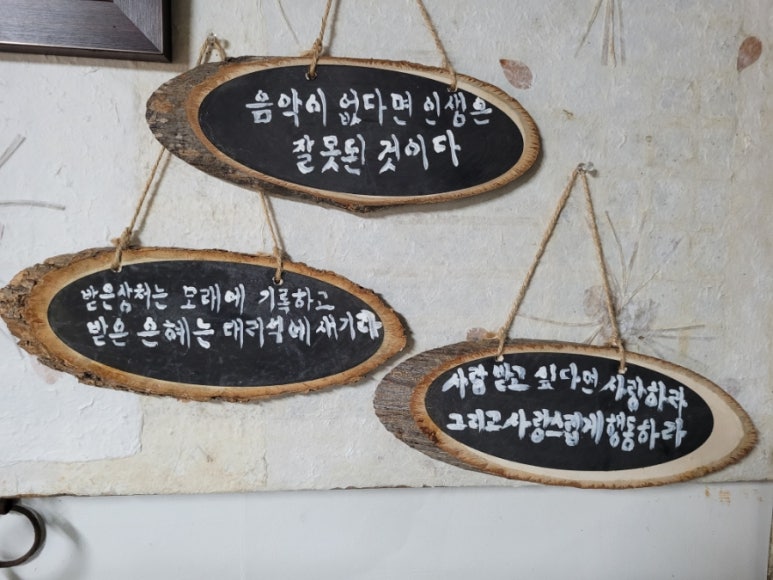 음악이 없다면 인생은
잘못된 것이다
받은상처는 모래에 기록하고
받은 은혜는 대리석에 새기라
사람 받고 싶다면 사랑하라
그리고 사랑스럽게 행동하라